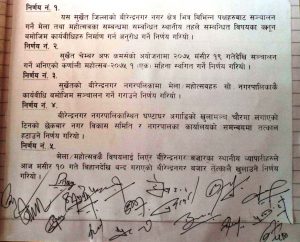 निर्णय नं. १.
यस सुर्खेत जिल्लाको वीरेन्द्रनगर नगर क्षेत्र भित्र विभिन्न पक्षहरुबाट सञ्चालन
गर्ने मेला तथा महोत्सवका सम्बन्धमा सम्बन्धित स्थानीय तहले सम्बन्धित विषयका
बमोजिम कार्यविधिहरु निर्माण गर्न अनुरोध गर्ने निर्णय गरियो ।
निर्णय नं. २.
सुर्खेत चेम्बर अफ कमर्सको अयोजनामा २०७५ मंसिर १९ गतेदेखि सञ्चालन
गर्ने भनिएको कर्णाली महोत्सव-२०७५ १ (एक) महिना स्थगित गर्ने निर्णय गरियो ।
निर्णय नं. ३.
सुर्खेतको वीरेन्द्रनगर नगरपालिकामा मेला/महोत्सवहरु सो नगरपालिकाकै
कार्यविधि बमोजिम सञ्चालन गर्ने गराउने निर्णय गरियो ।
निर्णय नं. ४.
वीरेन्द्रनगर नगरपालिकास्थित घण्टाघर अगाडिको खुलामञ्च चौरमा लगाएको
टिनको छेकबार नगर विकास समिति र नगरपालिका कार्यालयको समन्वयमा तत्काल
हटाउने निर्णय गरियो ।
निर्णय नं. ५.
मेला/महोत्सवकै विषयलाई लिएर वीरेन्द्रनगर बजारका स्थानीय व्यापारीहरुले
आज मंसिर १० गते बिहानदेखि बन्द गराएको वीरेन्द्रनगर बजार तत्काल खुलाउने निर्णय
गरियो ।